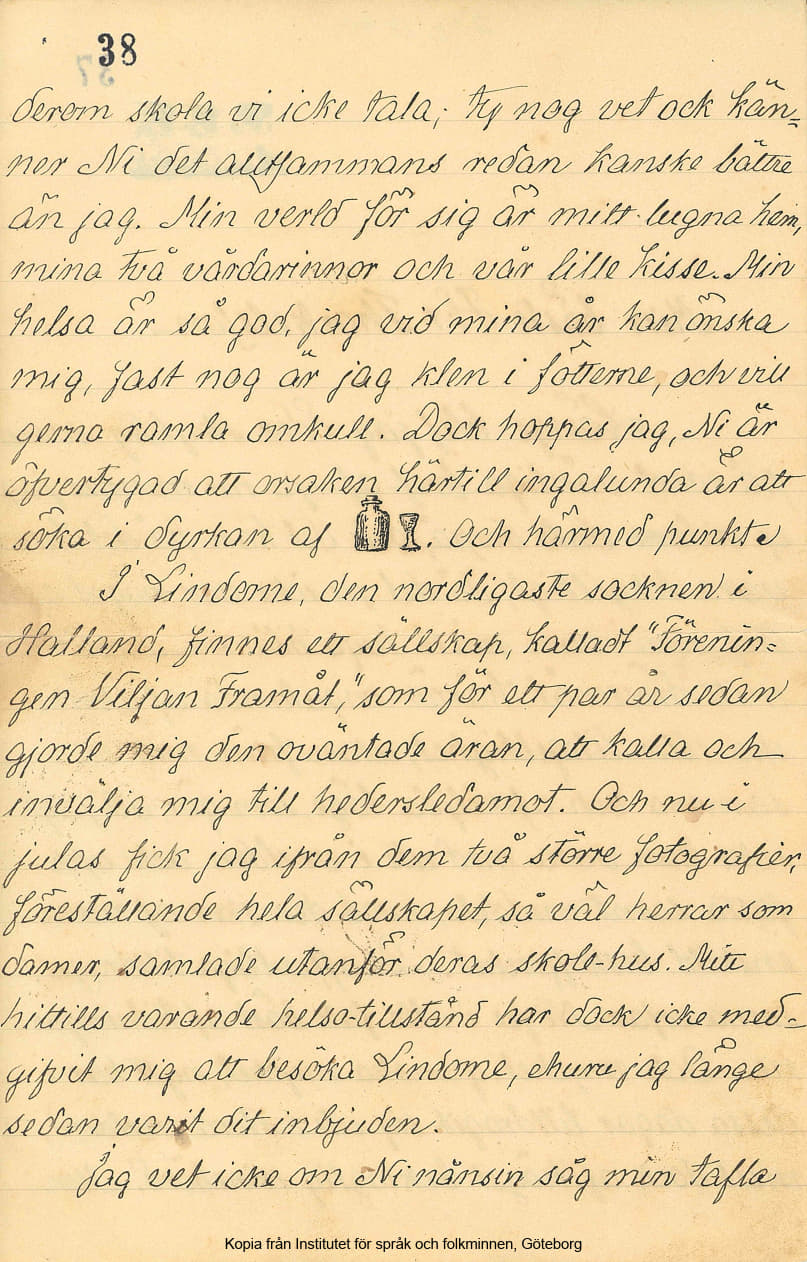 38
derom skola vi icke tala; ty nog vet ock kän-
ner Ni det allesammans redan kanske bättre
än jag. Min verld för sig är mitt lugna hem,
mina två vårdarinnor och vår lille kisse. Min
helsa är så god, jag vid mina år kan önska
mig, fast nog är jag klen i fötterne, och vill
gerna ramla omkull. Dock hoppas jag, Ni är
öfvertygad att orsaken härtill ingalunda är att
söka i dyrkan af . Och härmed punkt.
I Lindome, den nordligaste socknen i
Halland, finnes ett sällskap, kalladt "Förenin-
gen Viljan Framåt," som för ett par år sedan
gjorde mig den oväntade äran, att kalla och
invälja mig till hedersledamot. Och nu i
julas fick jag ifrån dem två större fotografier,
föreställande hela sällskapet, så väl herrar som
damer, samlade utanför deras skole-hus. Mitt
hittills varande helso-tillstånd har dock icke med-
gifvit mig att besöka Lindome, ehuru jag länge
sedan varit dit inbjuden.
Jag vet icke om Ni nånsin såg min tafla
Kopia från Institutet för språk och folkminnen, Göteborg